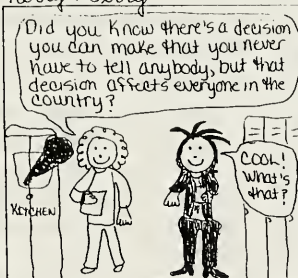 Did you know there's a decision
you can make that you never
have to tell anybody, but that
decision affects everyone in the
country?
COOL!
What's
that?
KITCHEN